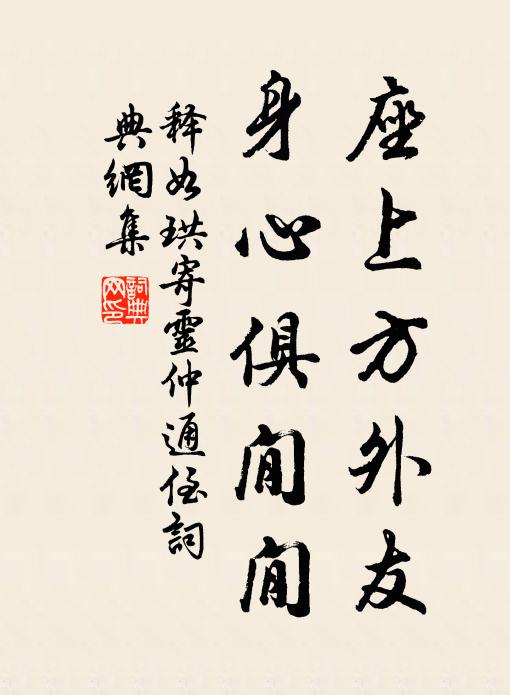 座上方外友
身心俱閒閒
释如珙寄靈仲通侄詞
典網集
詞典
网印